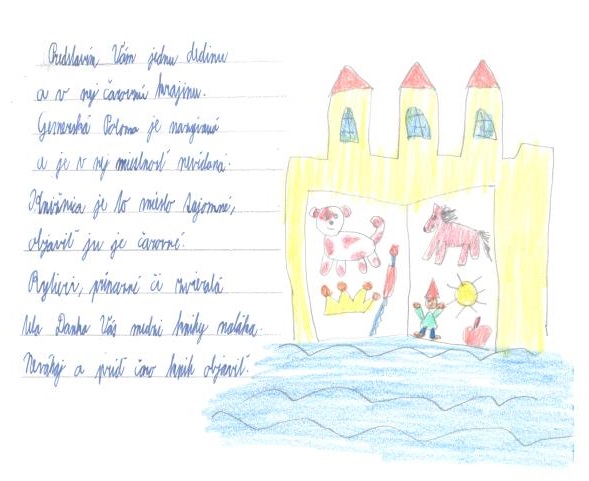 Predstavím Vám jednu dedinu
a v nej čarovnú krajinu.
Gemerská Poloma je nazývaná
a je v nej miestnosť nevídaná.
Knižnica je to miesto tajomné,
objaviť ju je čarovné.
Rytieri, princezné či zvieratá
Ula Danka Vás medzi knihy naláka.
Neváhaj a príď čaro kníh objaviť.